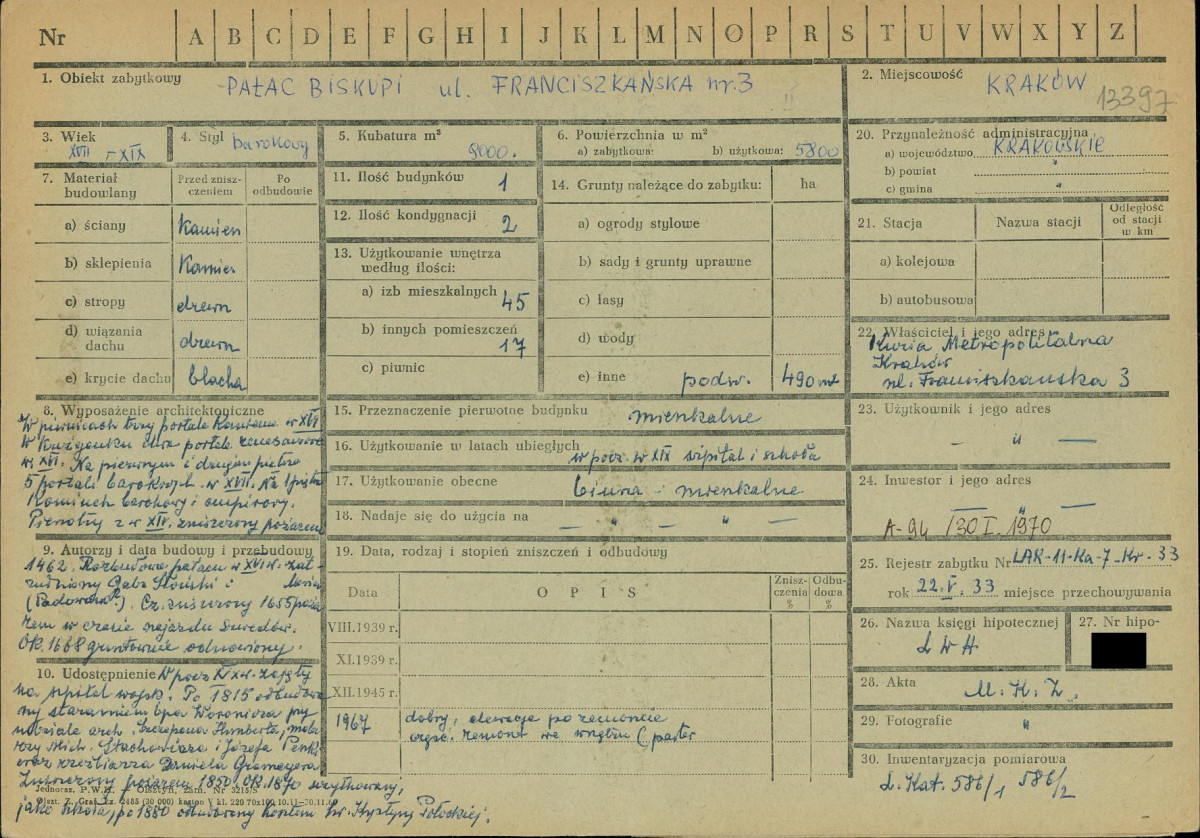 Nr A B C D E F G H I J K L M N O P R S T U V W X Y Z
1. Obiekt zabytkowy PAŁAC BISKUPI ul. FRANCISZKAŃSKA nr. 3
2. Miejscowość KRAKÓW
13397
3. Wiek XVII - XIX
4. Styl barokowy
5. Kubatura m³ 9000.
6. Powierzchnia w m²
a) zabytkowa: b) użytkowa: 5800
20. Przynależność administracyjna
a) województwo KRAKOWSKIE
b) powiat "
c) gmina "
7. Materiał budowlany
Przed zniszczeniem
Po odbudowie
a) ściany kamien
b) sklepienia kamien
c) stropy drewn
d) wiązania dachu drewn
e) krycie dachu blacha
11. Ilość budynków 1
12. Ilość kondygnacji 2
13. Użytkowanie wnętrza
według ilości:
a) izb mieszkalnych 45
b) innych pomieszczeń 17
c) piwnic
14. Grunty należące do zabytku: ha
a) ogrody stylowe
b) sady i grunty uprawne
c) lasy
d) wody
e) inne podw. 490 m²
21. Stacja Nazwa stacji Odległość od stacji w km
a) kolejowa
b) autobusowa
22. Właściciel i jego adres
Kuria Metropolitalna
Kraków
ul. Franciszkanska 3
8. Wyposażenie architektoniczne
W piwnicach trzy portale kamienne w XVI
w krużganku dwa portale renesansowe
w XVI. Na pierwszym i drugim piętrze
5 portali barokowych w XVII. Na I piętrze
kominek barokowy i empirowy.
Pierwotny z w XIV. zniszczony pożarem
15. Przeznaczenie pierwotne budynku mieszkalne
16. Użytkowanie w latach ubiegłych w pocz. w XIX szpital i szkoła
17. Użytkowanie obecne biura - mieszkalne
18. Nadaje się do użycia na — " — " —
23. Użytkownik i jego adres
— " —
24. Inwestor i jego adres
— " —
A-94 /30 I. 1970
9. Autorzy i data budowy i przebudowy
1462. Rozbudowa pałacu w XVI w. zatrudniony Gabr. Słoński i
(Padovana?). Cz. zniszczony 1655 pożarem w czasie najazdu szwedów.
Ok. 1668 gruntownie odnowiony.
19. Data, rodzaj i stopień zniszczeń i odbudowy
Data OPIS Zniszczenia % Odbudowa %
VIII.1939 r.
XI.1939 r.
XII.1945 r.
1967 dobry, elewacje po remoncie
część. remont we wnętrzu (parter
25. Rejestr zabytku Nr LAR-11-Ka-7-Kr-33
rok 22.V.33 miejsce przechowywania
26. Nazwa księgi hipotecznej
LWH
27. Nr hipo-
28. Akta M.K.Z.
29. Fotografie "
30. Inwentaryzacja pomiarowa
L. Kat. 586/1 586/2
10. Udostępnienie W pocz XIX w. zajęty
na szpital wojsk. Po 1815 odbudowany staraniem bpa Woronicza przy
udziale arch. Szczepana Humberta, malarzy Mich. Stachowicza i Józefa Penki
oraz rzeźbiarza
Zniszczony pożarem 1850. Ok. 1870 użytkowany,
jako szkoła, po 1880 odbudowany kosztem hr. Krystyny Potockiej.
Jednoraz. P.W.H. Olsztyn, zam. Nr 3215/S
Olszt. Z. Graf. Zz. 2485 (30 000) karton V kl. 220 70x100 10.11-30.11.60